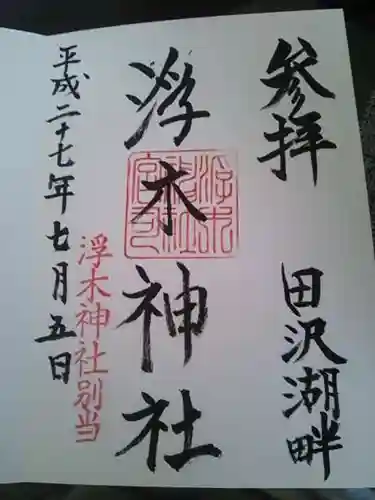 参拝 田沢湖畔
浮木神社
浮木神社別当
平成二十七年七月五日